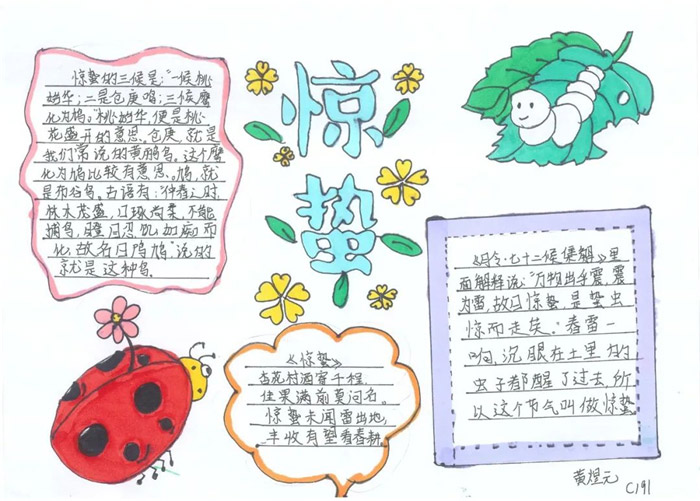 惊蛰
惊蛰的三候是:“一候桃
始华;二是仓庚鸣;三候鹰
化为鸠。”桃始华,便是桃
花盛开的意思。仓庚,就是
我们常说的黄鹂鸟。这个鹰
化为鸠比较有意思。鸠,就
是布谷鸟。古语有:“仲春之时,
林木茂盛,口啄尚柔,不能
捕鸟,瞪目忍饥如痴而
化,故名曰鸤鸠”说的
就是这种鸟。
《月令·七十二候集解》里
面解释说:“万物出乎震,震
为雷,故曰惊蛰,是蛰虫
惊而走矣。”春雷一
响,沉眠在土里的
虫子都醒了过去,所
以这个节气叫做惊蛰
《惊蛰》
杏花村酒寄千程,
佳果满前莫问名。
惊蛰未闻雷出地,
丰收有望看春耕。
黄煜元
C191